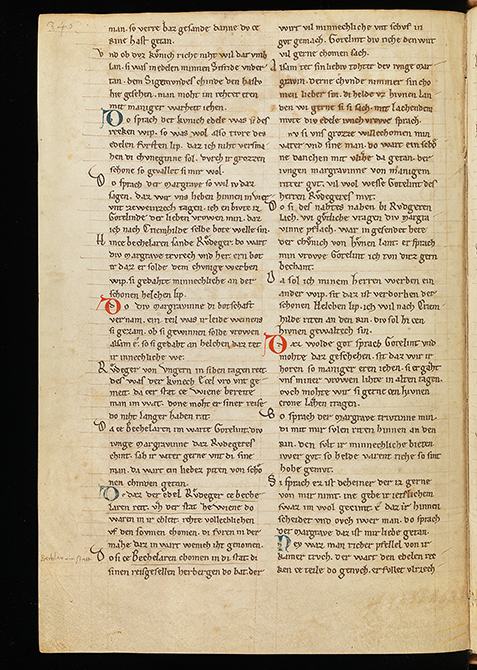 340
man. so verre bar gesande danne dv ce
eime hast getan.
Vnd ob dvz kvnich riche niht wil dar vmb
lan. si was in edelen minnen Sifride vnder
tan. dem Sigemvndes chinde den hastv
hie gesehen. man moht im reht er eren
mit maniger warheit iehen.
Do sprach der kvnich edele was si des
recken wip. so was wol also tivre des
edelen fvrsten lip. daz ich niht versma
hen di chvneginne sol. dvrch ir grozzen
schone so gevallet si mir wol.
Do sprach der margrave so wil ich daz
sagen. daz wir vns heben hinnen in vier
vnt zeweinzech tagen. ich en bivte iz
Gotelinde der lieben vrowen min. daz
ich nach Criemhilde selbe bote welle sin.
Hince bechelaren sande Rvdeger. do wart
div margrave trvrech vnd her. er en bot
ir daz er solde dem chvnige werben
wip. si gedahte minnechliche an der
schonen helchen lip.
Do div margravinne di botschaft
vernam. ein teil was ir leide weinens
si gezam. ob si gewinnen solde vrowen
alsam e. so si gedaht an helchen daz tet
ir innechliche we.
Rvdeger von Vngern in siben tagen reit.
des was der kvnech Ecel vro vnt ge
meit. da cer stat ce wiene bereite
man im wat. done moht er siner reise
do niht langer haben rat.
Da ce Bechelaren im warte Gotelint. div
ivnge margravinne daz Rvdegeres
chint. sah ir vater gerne vnt di sine
man. da wart ein lieber piten von scho
nen chinden getan.
E daz der edel Rvdeger ce beche
laren reit. vz der stat ce wiene do
waren in ir chleit. rehte vollechlichen
vf den sovmen chomen. di fvren in der
mazze daz in wart wenich iht genomen.
Do si ce Bechelaren chomen in di stat. di
sinen reisgesellen herbergen do bat. der
wirt vil minnechliche vnt schvf in
gvt gemach. Gotelint div riche den wirt
vil gerne chomen sach.
Alsam tet sin liebiv tohter dev ivnge mar
gravin. derne chvnde nimmer sin cho
men lieber sin. di helde vz hivnen lan
den wi gerne si si sach. mit lachendem
mvte div edele ivnchvrowe sprach.
Nv si vns grozze willechomen min
vater vnd sine man. do wart ein scho
ne danchen mit vlize da getan. der
ivngen margravinne von manigem
ritter gvt. vil wol wesse Gotelint des
herren Rvdegeres mvt.
Do si des nahtes nahen bi Rvdgeren
lach. wi gvtliche vragen div margra
vinne pflach. war in gesendet hete
der chvnich von hvnen lant. er sprach
min vrowe Gotelint ich tvn dirz gern
bechant.
Da sol ich minem herren werben ein
ander wip. sit daz ist verdorben der
schonen Helchen lip. ich wil nach Criem
hilde riten an den Rin. div sol hi cen
hivnen gewaltech sin.
Daz wolde got sprach Gotelint vnd
mohte daz geschehen. sit daz wir ir
horen so maniger eren iehen. si ergazt
vns miner vrowen lihte in alten tagen.
ovch mohte wir si gerne cen hivnen
crone lazen tragen.
Do sprach der margrave trivtinne min.
di mit mir svlen riten hinnen an den
Rin. den svlt ir minnechliche bieten
iwer gvt. so helde varent riche so sint
si hohe gemvt.
Si sprach ez ist deheiner der iz gerne
von mir nimt. ine gebe ir ieslichem.
swaz im wol gecimt. e daz ir hinnen
scheidet vnd ovch iwer man. do sprach
der margrave daz ist mir liebe getan.
Hey waz man richer pfellel von ir
kamer trvch. der wart den edelen rec
ken ce teile do genvch. erfvllet vlizech